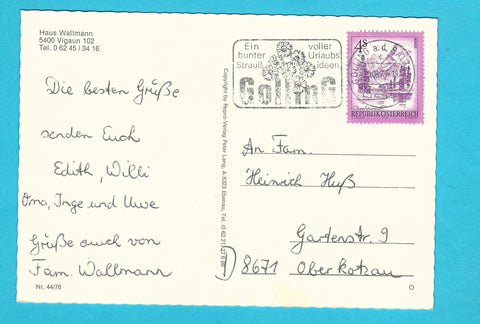 Haus Wallmann
5400 Vigaun 102
Tel. 0 62 45 / 34 16
Die besten Grüße
senden Euch
Edith, Willi
Oma, Inge und Uwe
Grüße auch von
Fam. Wallmann
Nr. 44/78
Copyright by Repro-Verlag Peter Lang, A-5323 Ebenau, Tel.
Ein voller
bunter Urlaubs
Strauß ideen
GollinG
4 S
REPUBLIK ÖSTERREICH
An Fam.
Heinrich Huß
Gartenstr. 9
8671 Oberkotzau